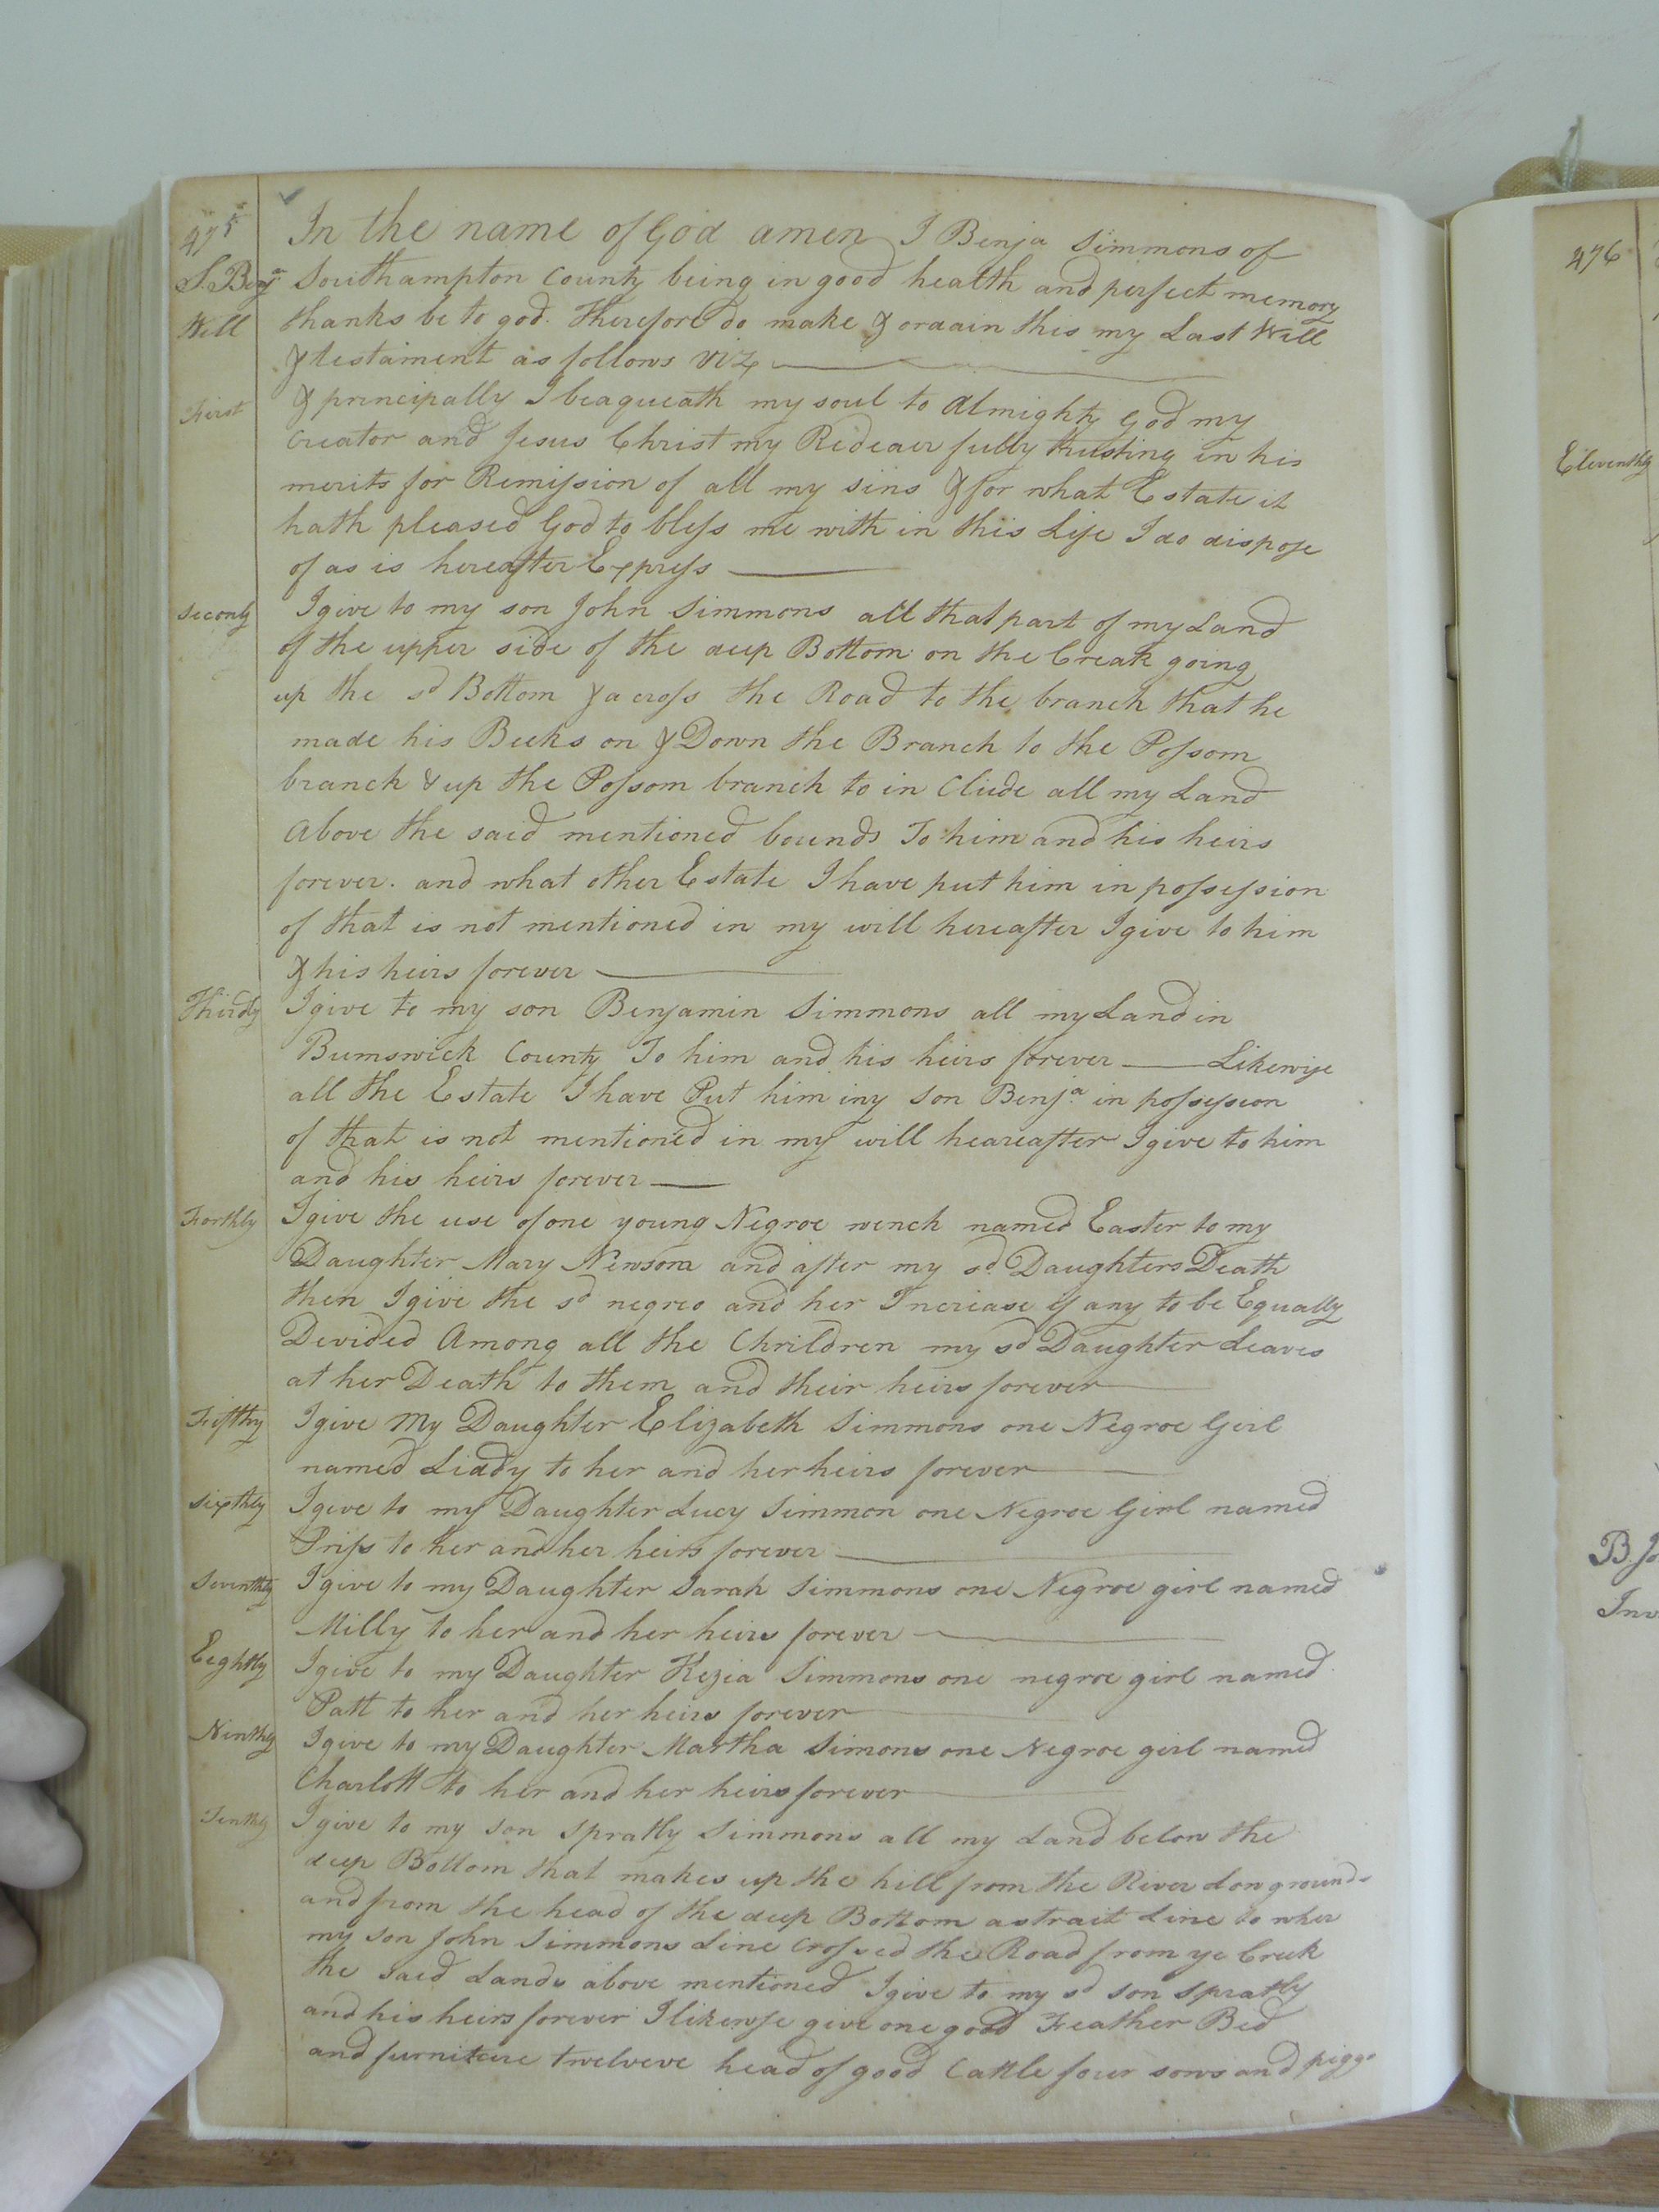 475
In the name of God amen I Benja Simmons of
S. Benja
Southampton County being in good health and perfect memory
Will
thanks be to god. Therefore do make & ordain this my Last Will
& testament as follows viz
First
& principally I beaqueath my soul to Almighty God my
Creator and Jesus Christ my Redeaur fully trusting in his
merits for Remission of all my sins & for what Estate it
hath pleased God to bless me with in this Life I do dispose
of as is hereafter Express
Seconly
I give to my son John Simmons all that part of my Land
of the upper side of the deep Bottom on the Creak going
up the sd Bottom & a cross the Road to the branch that he
made his Beeks on & Down the Branch to the Possom
branch & up the Possom branch to in Clude all my Land
Above the said mentioned bounds To him and his heirs
forever. and what other Estate I have put him in possession
of that is not mentioned in my will hereafter I give to him
& his heirs forever
Thirdly
I give to my son Benjamin Simmons all my Land in
Bumswick County To him and his heirs forever Likewise
all the Estate I have Put him my Son Benja in possession
of that is not mentioned in my will heareafter I give to him
and his heirs forever
Forthly
I give the use of one young Negroe wench named Easter to my
Daughter Mary Newsom and after my sd Daughters Death
then I give the sd negreo and her Increase if any to be Equally
Devided Among all the Chrildren my sd Daughter Leaves
at her Death to them and their heirs forever
Fifthly
I give My Daughter Elizabeth Simmons one Negroe Girl
named Liddy to her and her heirs forever
Sixthly
I give to my Daughter Lucy Simmon one Negroe Girl named
Priss to her and her heirs forever
Seventhly
I give to my Daughter Sarah Simmons one Negroe girl named
Milly to her and her heirs forever
Eeghtly
I give to my Daughter Kezia Simmons one negroe girl named
Patt to her and her heirs forever
Ninthly
I give to my Daughter Martha Simons one Negroe girl named
Charlott to her and her heirs forever
Tenthly
I give to my son Spratly Simmons all my Land below the
deep Bottom that makes up the hill from the River Low grounds
and from the head of the deep Bottom a strait Line to wher
my son John Simmons Line Crossed the Road from ye Creek
the said Lands above mentioned I give to my sd son Spratly
and his heirs forever I likewse give one good Feather Bed
and furniture twelveve head of good Cattle four sows and piggs
476
Eleventhly
B. Jo
Inv